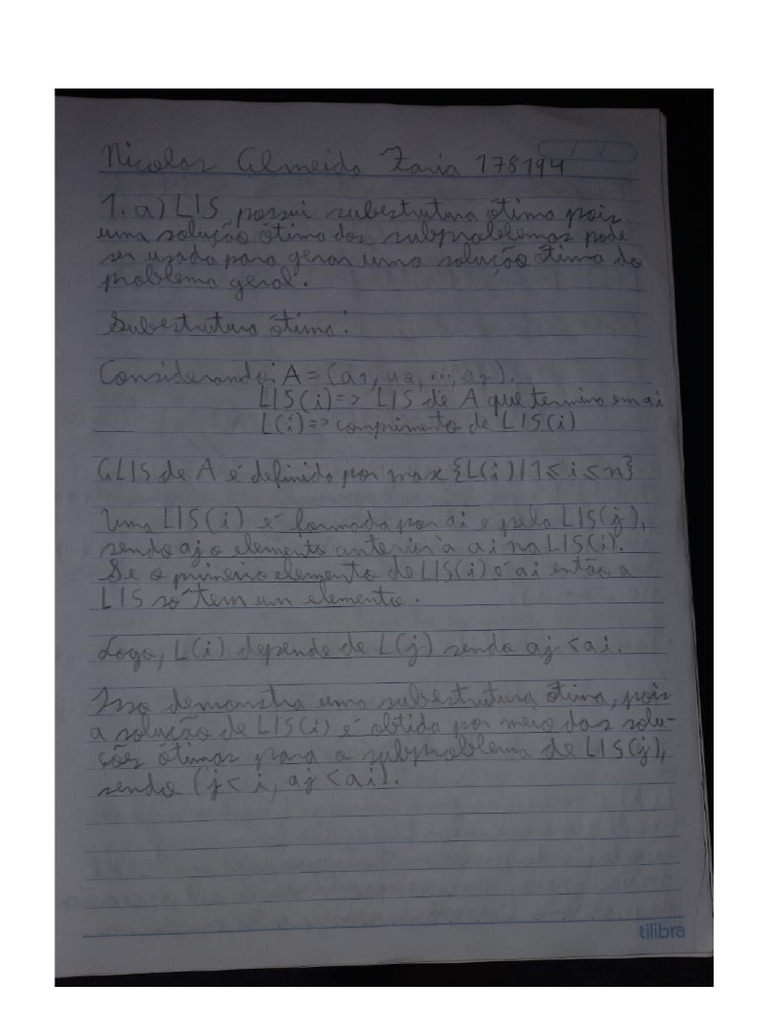 Nicolas Almeida Faria 178194
1. a) LIS possui subestrutura ótima pois
uma solução ótima dos subproblemas pode
ser usada para gerar uma solução ótima do
problema geral.
Subestrutura ótima:
Considerando: A = (a1, a2, ..., an).
LIS(i) => LIS de A que termina em ai
L(i) => comprimento de LIS(i)
A LIS de A é definida por max {L(i) | 1 ≤ i ≤ n}
Uma LIS(i) é formada por ai e pela LIS(j),
sendo aj o elemento anterior à ai na LIS(i).
Se o primeiro elemento de LIS(i) é ai então a
LIS só tem um elemento.
Logo, L(i) depende de L(j) sendo aj < ai.
Isso demonstra uma subestrutura ótima, pois
a solução de LIS(i) é obtida por meio das solu-
ções ótimas para o subproblema de LIS(j),
sendo (j < i, aj < ai).
tilibra